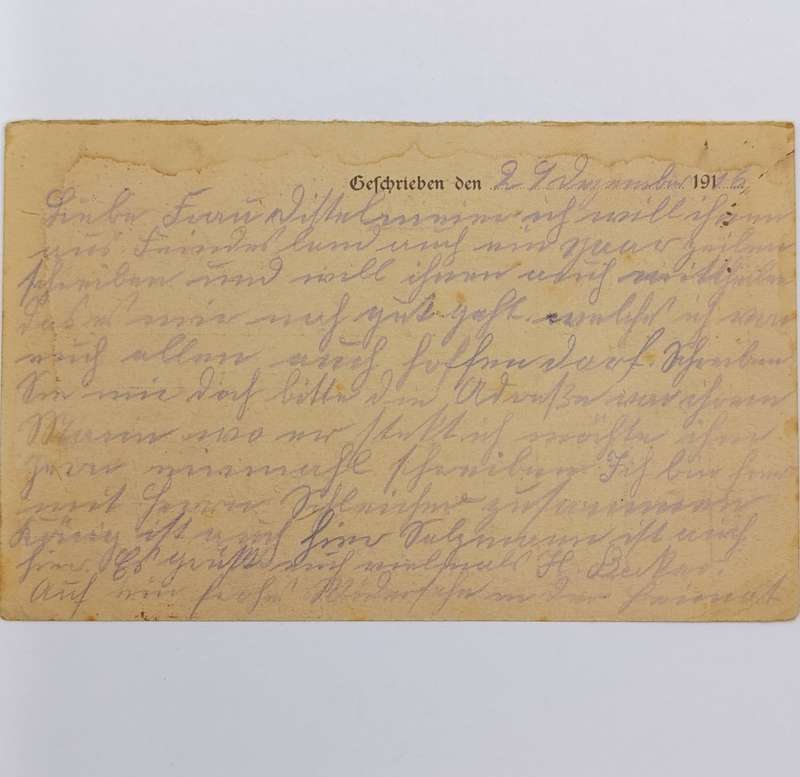 Geschrieben den 29 Dezember 1916
Liebe Frau Distelmeier ich will ihnen
aus Feindes land auch ein paar zeilen
schreiben und will ihnen auch mittheilen
das es mir noch gut geht welches ich von
euch allen auch hoffen darf. Schreiben
Sie mir doch bitte die Adreße von ihrem
Mann wo er stekt ich möchte ihm
gern einmahl schreiben Ich bin hier
mit Herrn Schleicher zusammen
König ist auch hier Salzmann ist auch
hier. Es grüßt euch vielmals H.
Auf ein frohes Wiedersehn in der Heimat